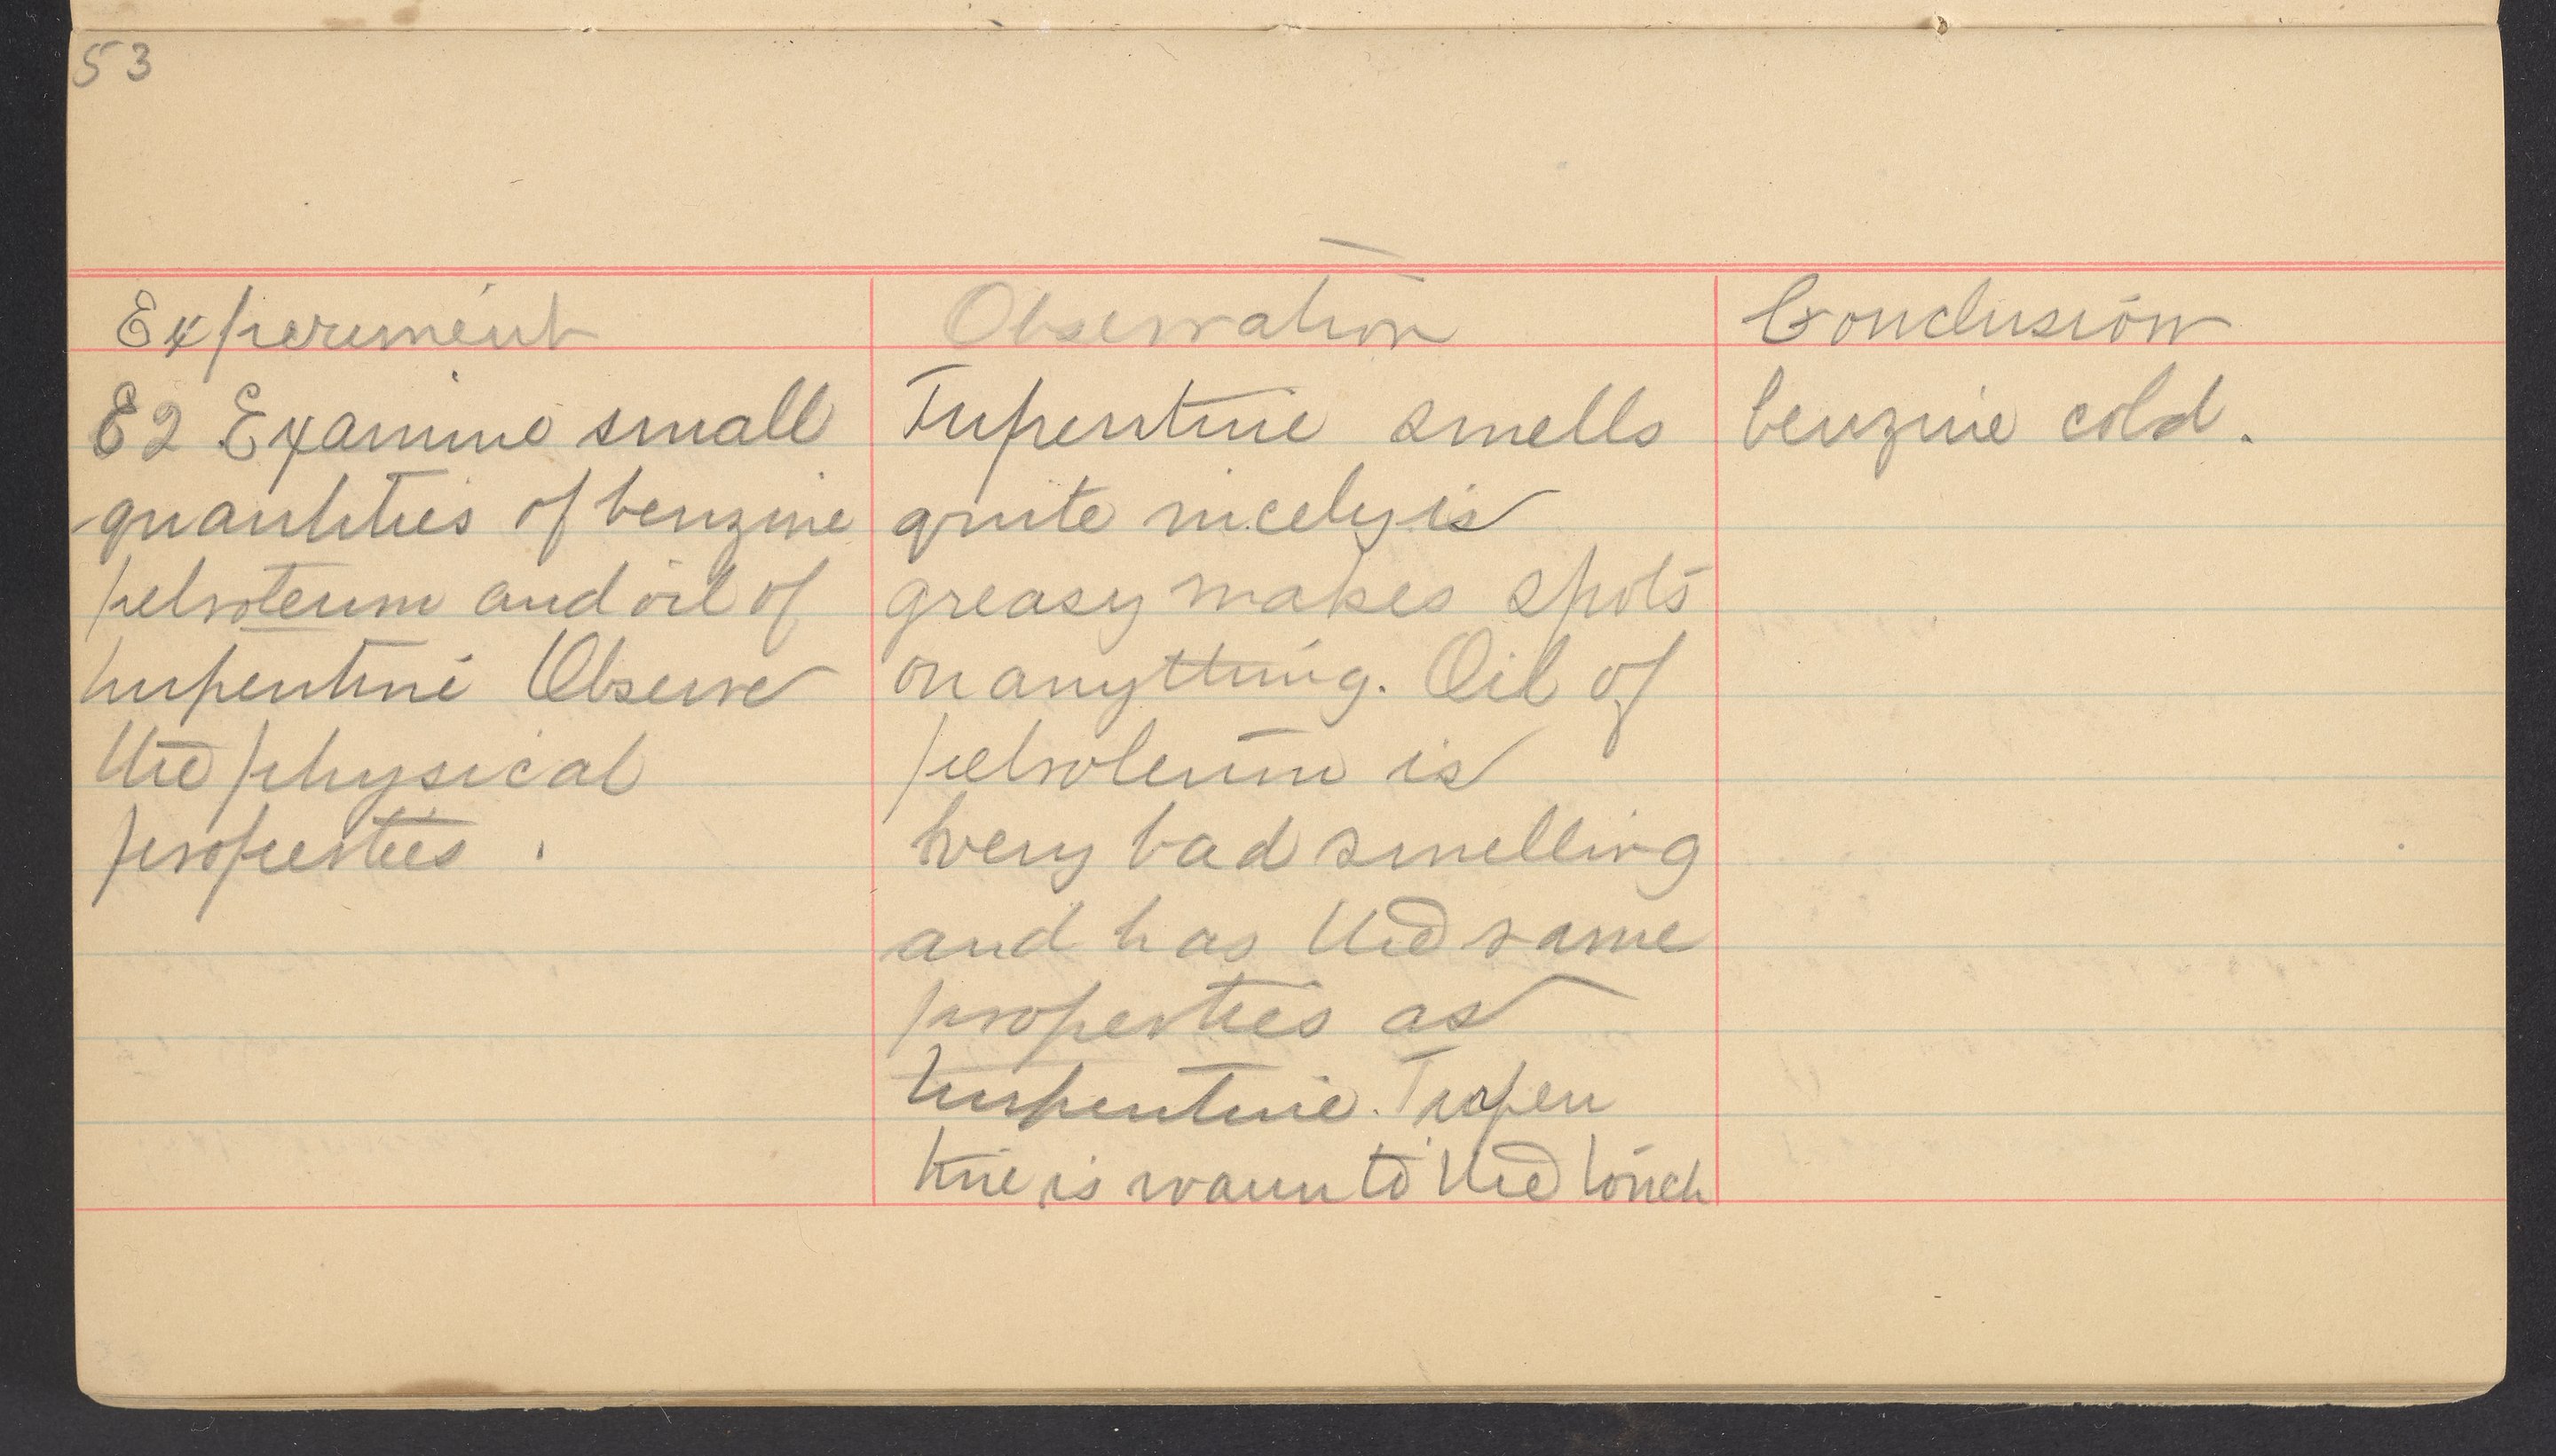 53
Experiment
E2 Examine small
quantities of benzine
petroleum and oil of
turpentine Observe
the physical
properties.
Observation
Turpentine smells
quite nicely is
greasy makes spots
on anything. Oil of
petroleum is
very bad smelling
and has the same
properties as
turpentine. Turpen
tine is warm to the touch
Conclusion
benzine cold.